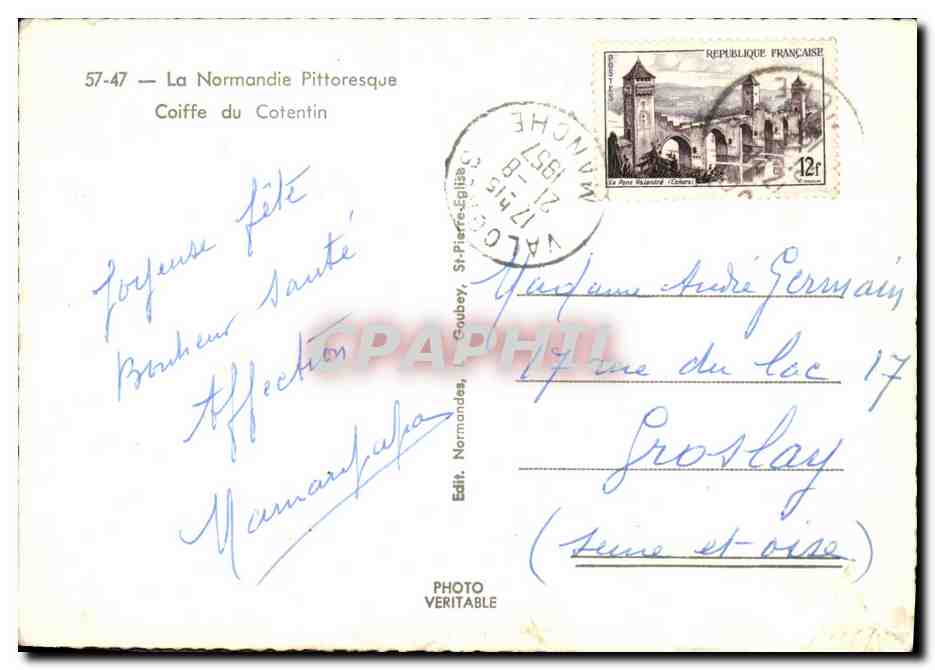 57-47 — La Normandie Pittoresque
Coiffe du Cotentin
Joyeuse fête
Bonheur Santé
Affection
Maman Papa
Edit. Normandes, L. Goubey, St-Pierre-Eglise
PHOTO
VERITABLE
POSTES
REPUBLIQUE FRANÇAISE
Le Pont Valentré (Cahors)
12f
VALOGNES
17 h15
21 -8
1957
MANCHE
Madame André Germain
17 rue du lac 17
Groslay
(Seine et-oise)
CPAPHIL